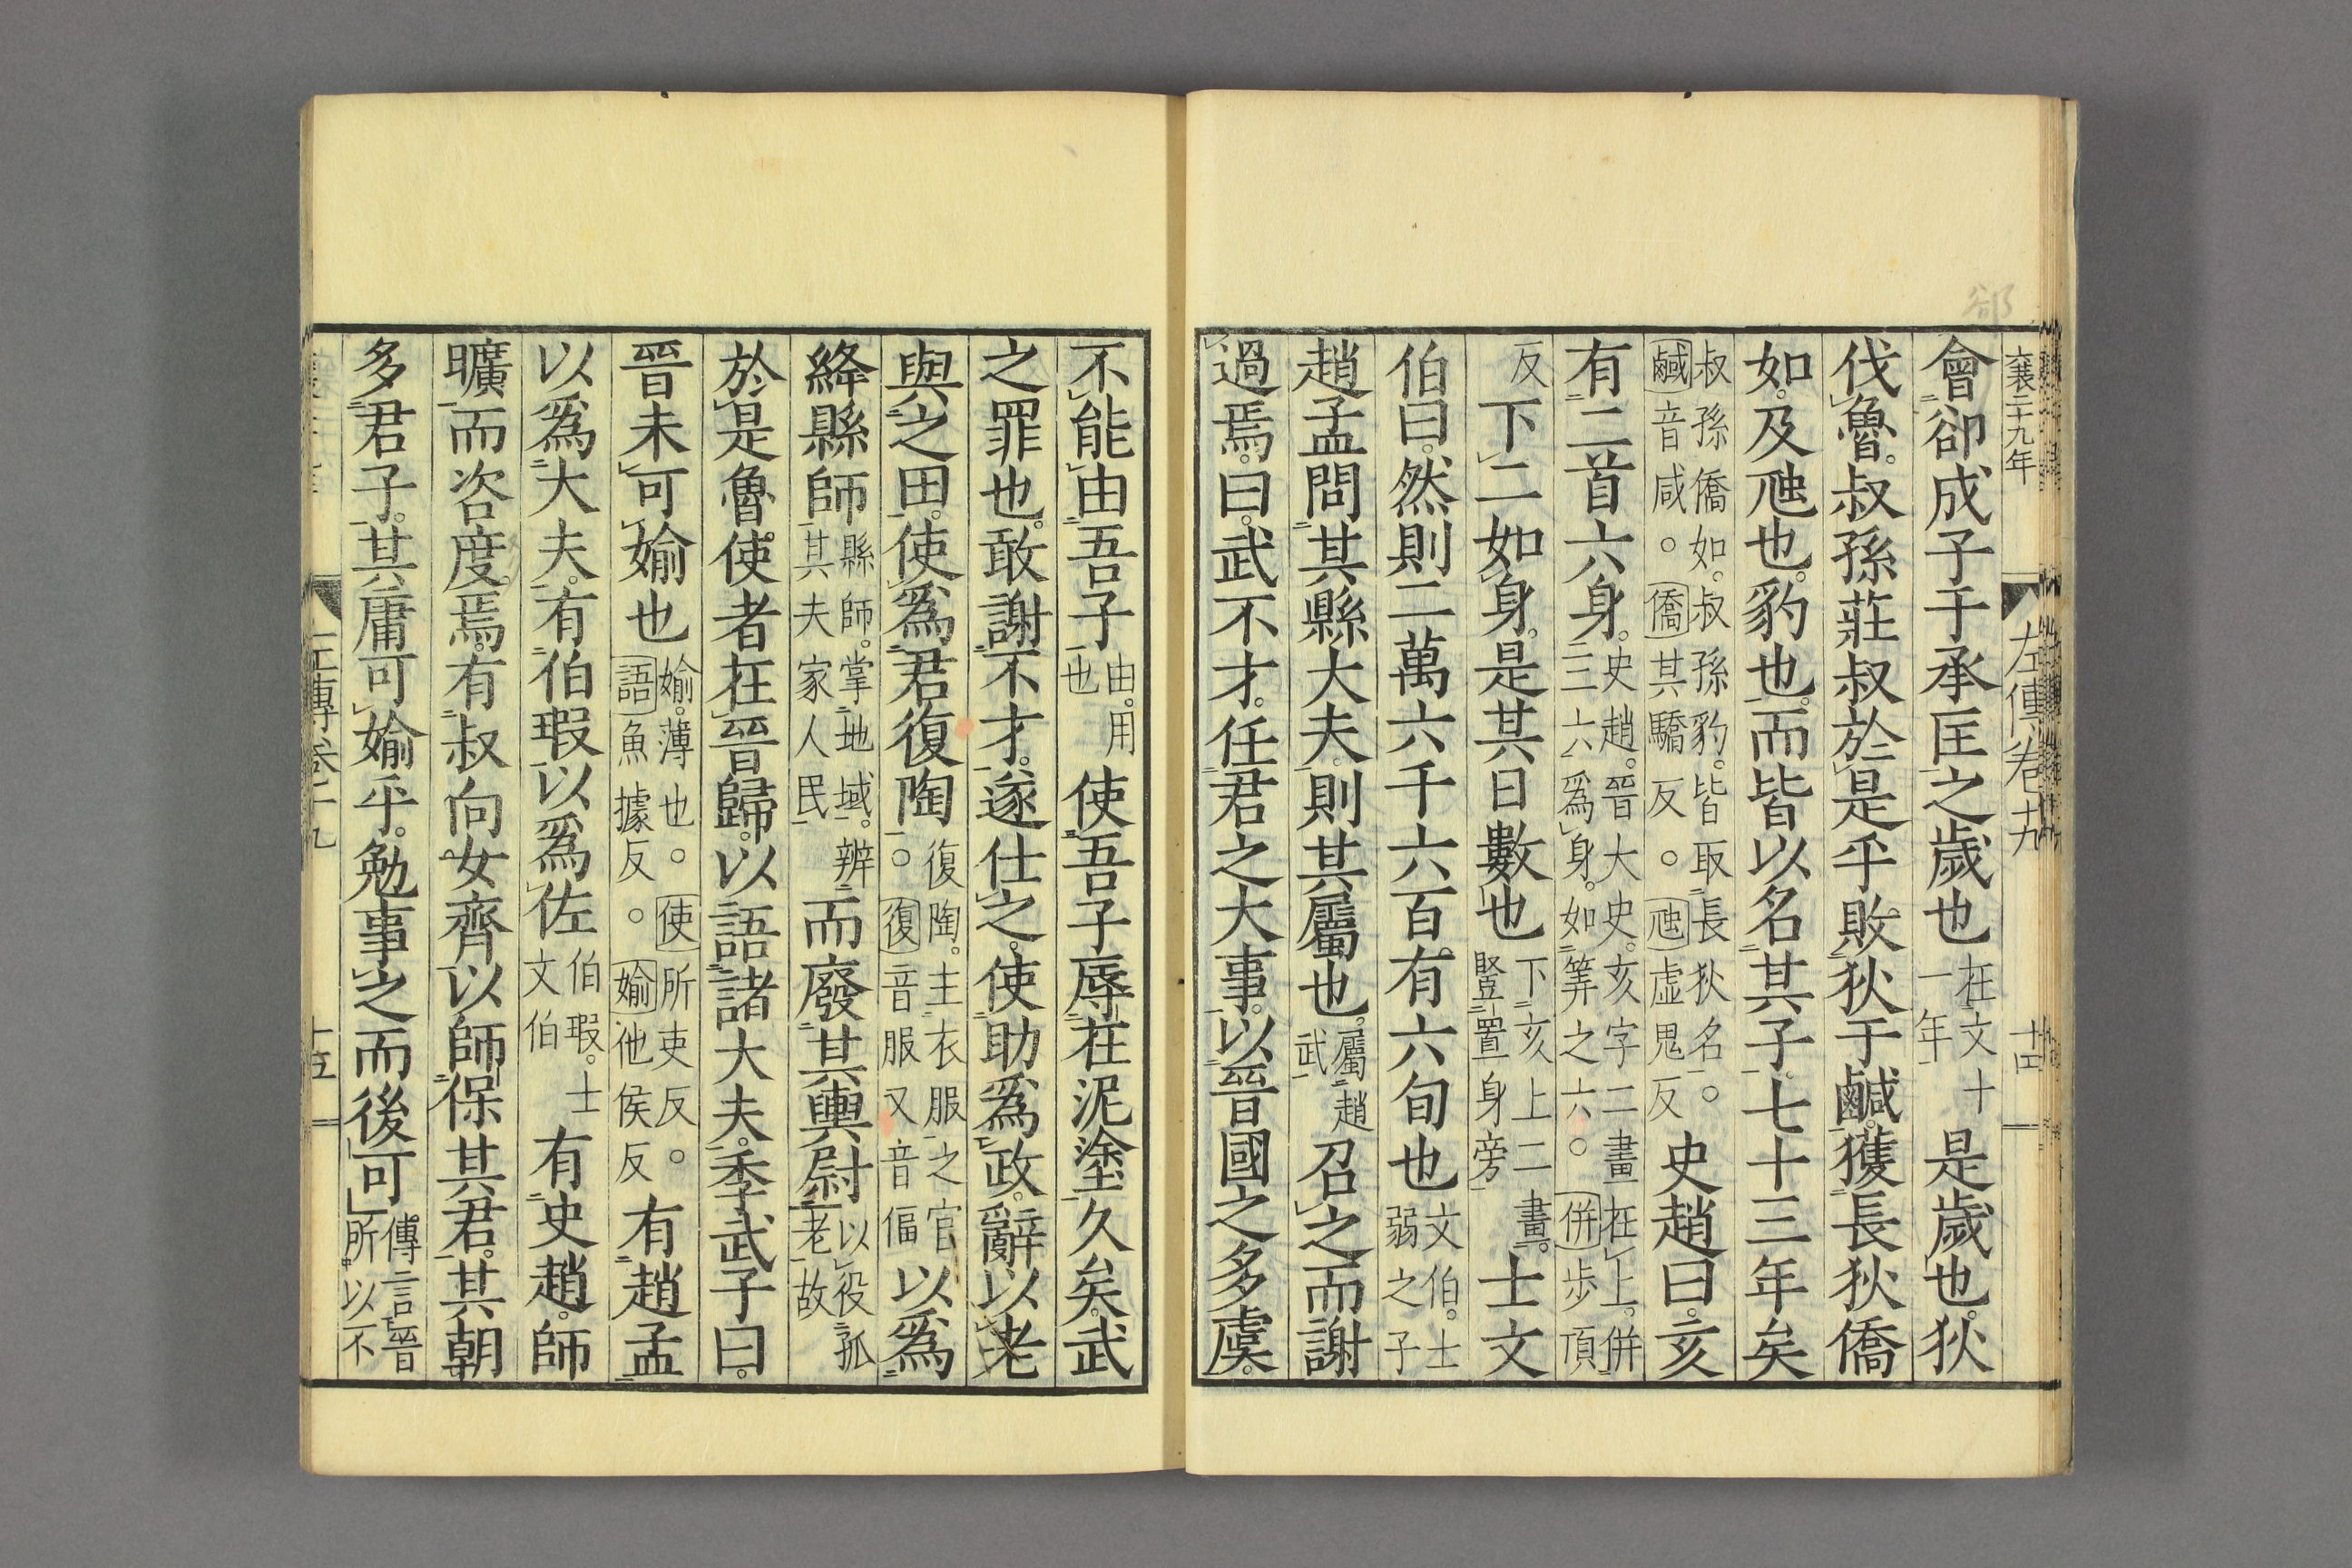 郤
襄三十九年
左傳卷十九
十四
會郤成子于承匡之歲也在文十一年是歲也狄
伐魯叔孫莊叔於是乎敗狄于鹹獲長狄僑
如及虺也豹也而皆以名其子七十三年矣
叔孫僑如叔孫豹皆取長狄名鹹音咸。僑其驕反。虺虛鬼反史趙曰亥
有二首六身史趙晉大史亥字二畫在上併三六爲身如筭之六。併步頂
反下二如身是其日數也下亥上二畫豎置身旁士文
伯曰然則二萬六千六百有六旬也文伯士弱之子
趙孟問其縣大夫則其屬也屬趙武召之而謝
過焉曰武不才任君之大事以晉國之多虞
不能由吾子由用也使吾子辱在泥塗久矣武
之罪也敢謝不才遂仕之使助爲政辭以老
與之田使爲君復陶復陶主衣服之官。復音服又音福以爲
絳縣師縣師掌地域辨其夫家人民而廢其輿尉以役孤老故
於是魯使者在晉歸以語諸大夫季武子曰
晉未可媮也媮薄也。使所吏反。語魚據反。媮他侯反有趙孟
以爲大夫有伯瑕以爲佐伯瑕士文伯有史趙師
曠而咨度焉有叔向女齊以師保其君其朝
多君子其庸可媮乎勉事之而後可傳言晉所以不
左傳卷十九
十五